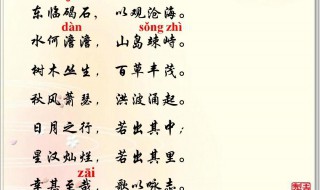 东临碣石，以观沧海。
dàn sǒng zhì
水何澹澹，山岛竦峙。
树木丛生，百草丰茂。
秋风萧瑟，洪波涌起。
日月之行，若出其中；
星汉灿烂，若出其里。
zāi
幸甚至哉，歌以咏志。